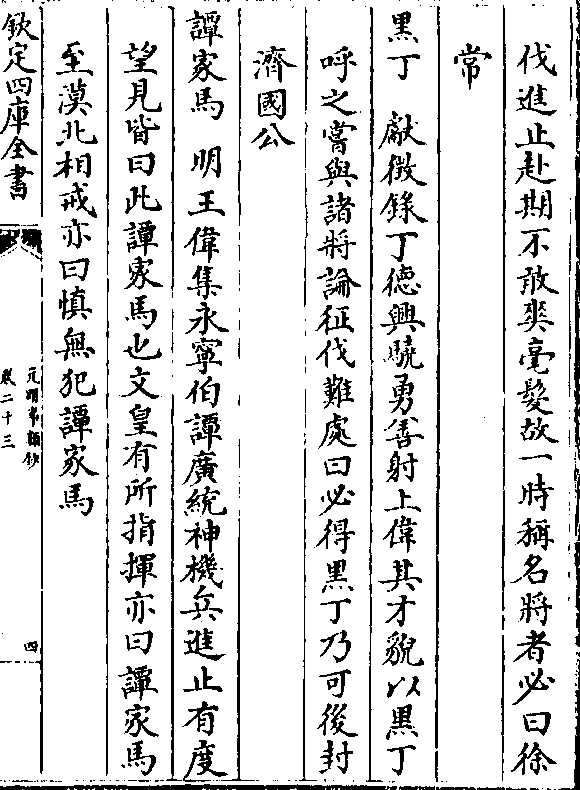 伐進止赴期不敢爽毫髮故一時稱名將者必曰徐
常
黑丁　獻徵錄丁德興驍勇善射上偉其才貌以黑丁
呼之嘗與諸將論征伐難處曰必得黑丁乃可後封
濟國公
譚家馬　明王偉集永寧伯譚廣統神機兵進止有度
望見皆曰此譚家馬也文皇有所指揮亦曰譚家馬
至漠北相戒亦曰慎無犯譚家馬
欽定四庫全書
元明事類鈔
卷二十三
四